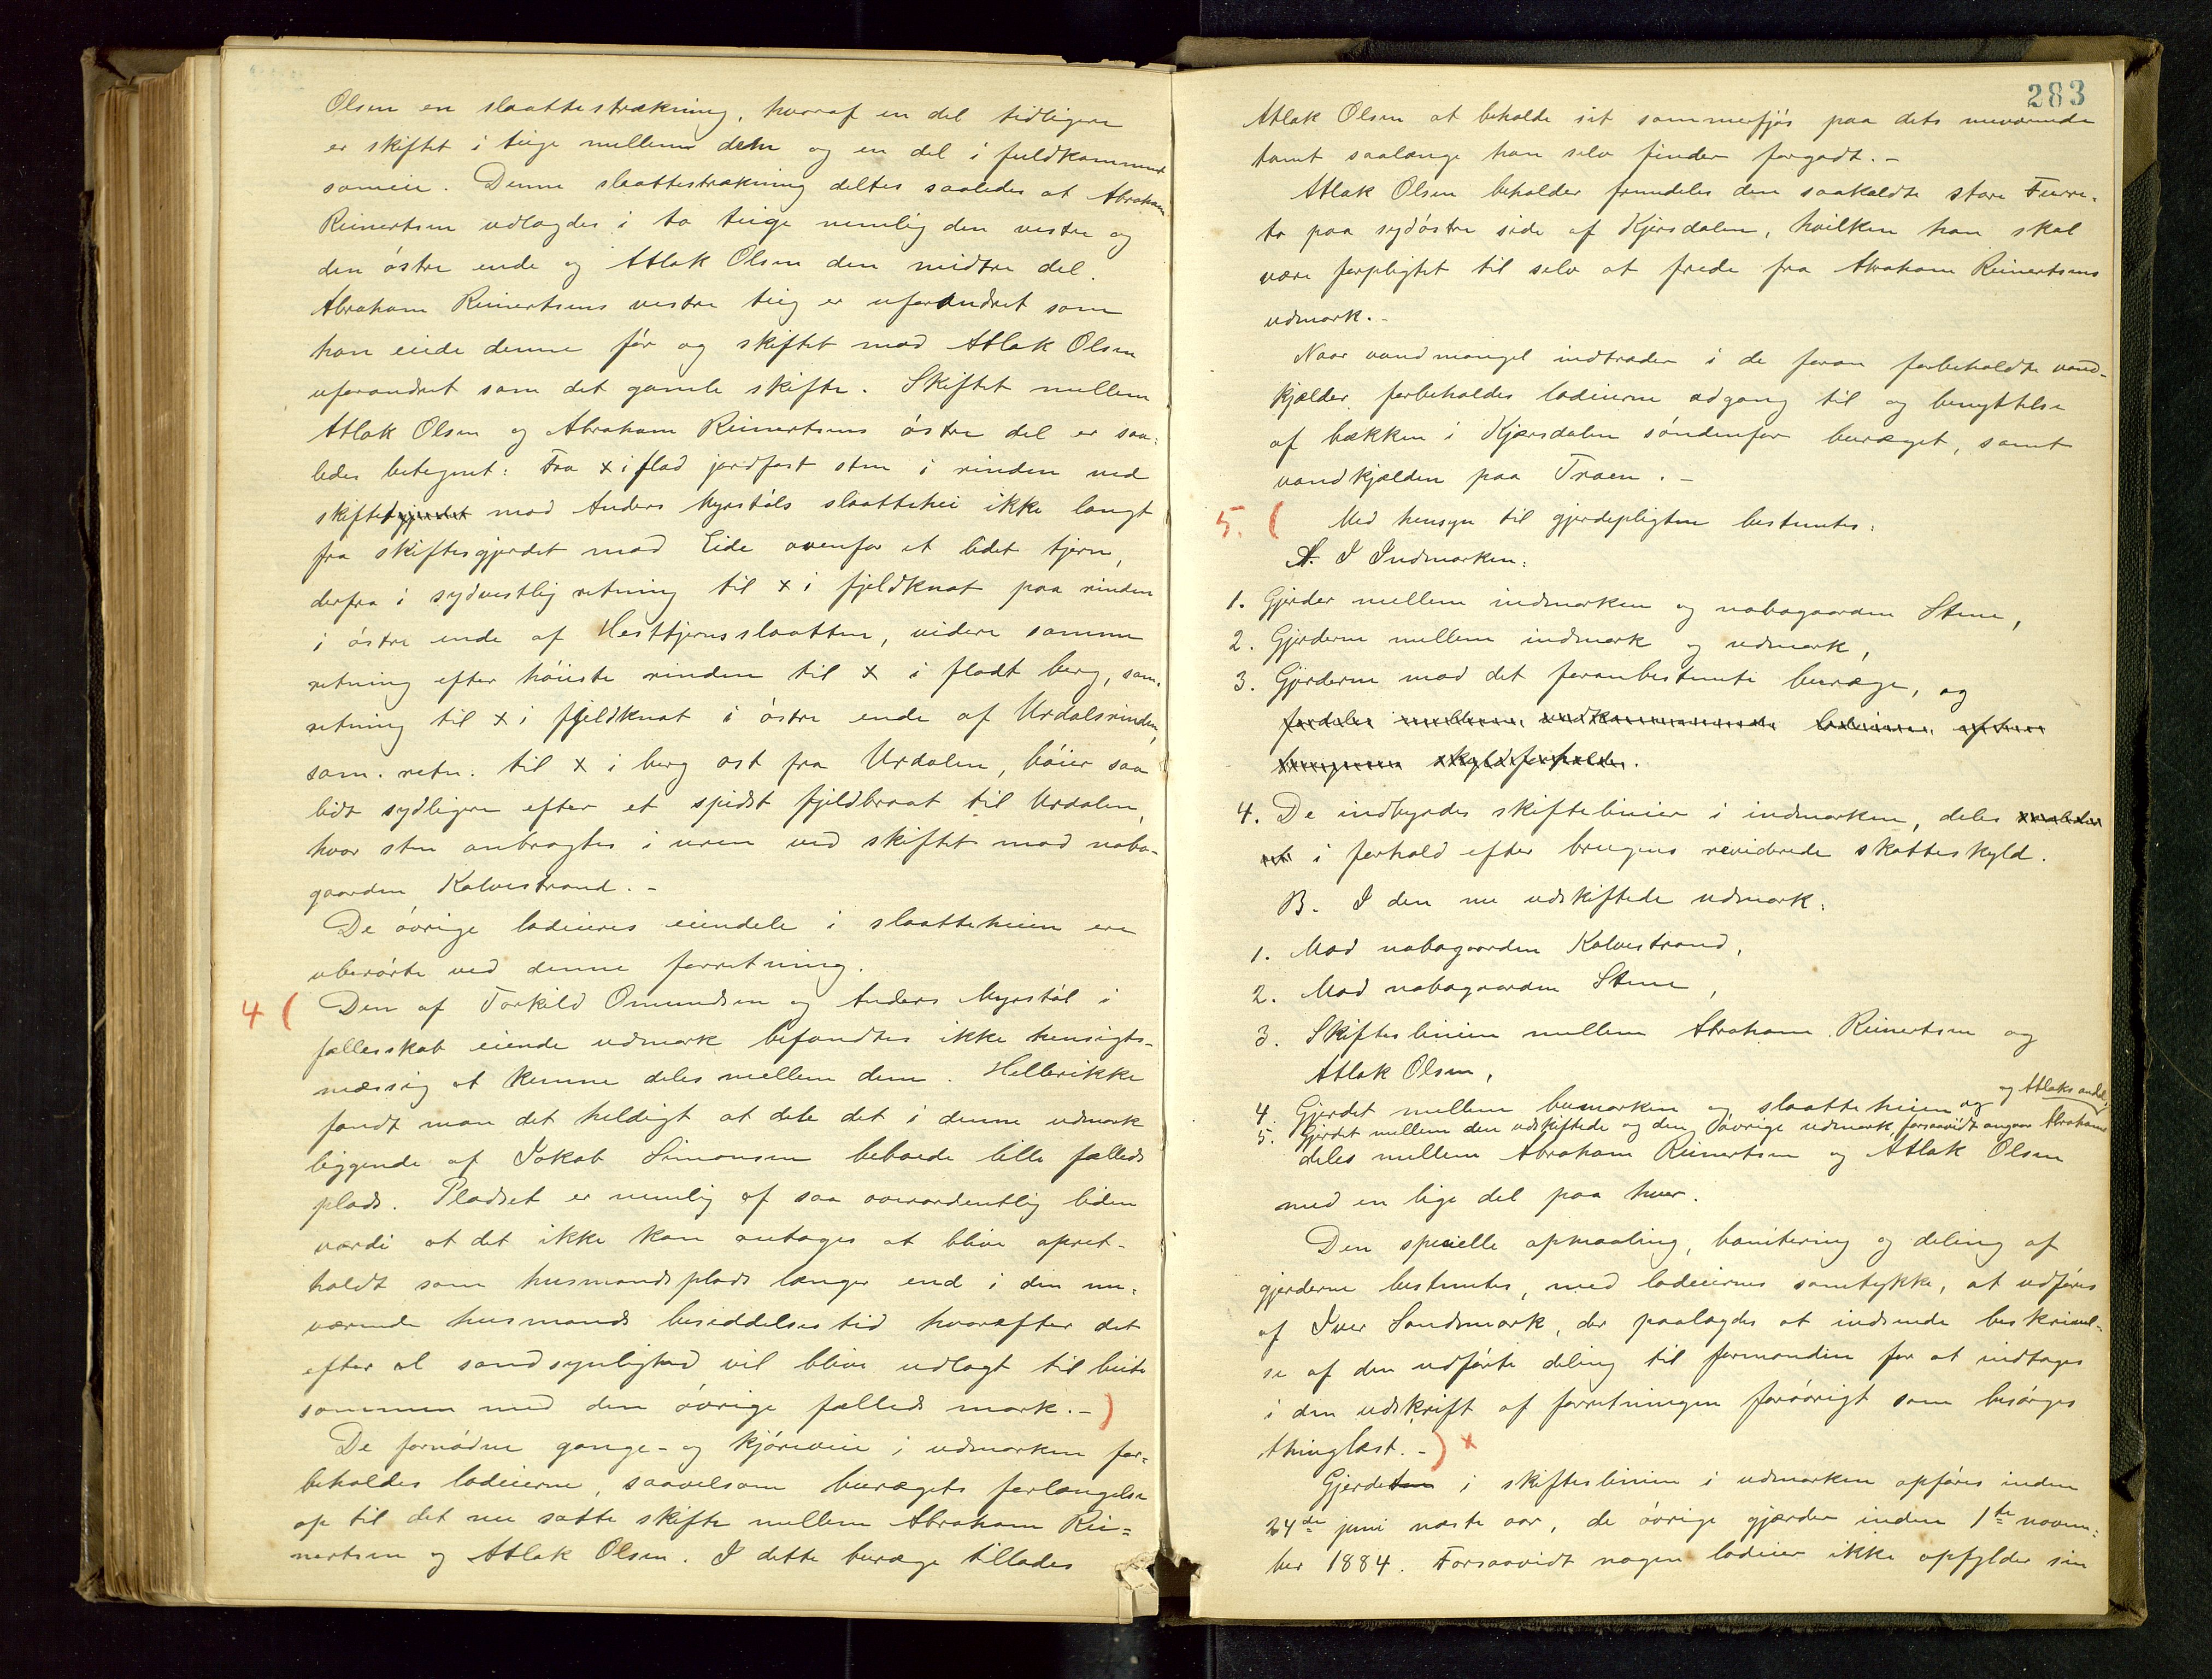 Olsen en slaattestrækning, hvoraf en del tidligere
er skiftet i teige mellem dem og en del i fuldkommen
sameie. Denne slaattestrækning deltes saaledes at Abraham
Reinertsen udlagdes i to teige nemlig den vestre og
den östre ende og Atlak Olsen den midtre del.
Abraham Reinertsens vestre teig er uforandret som
han eiede denne för og skiftet mod Atlak Olsen
uforandret som det gamle skifte. Skiftet mellem
Atlak Olsen og Abraham Reinertsens östre del er saa-
ledes betegnet: Fra x i flad jordfast sten i rinden ved
skiftet mod Anders Myrstöls slaattehei ikke langt
fra skiftesgjerdet mod Eide ovenfor et lidet tjern,
derfra i sydvestlig retning til x i fjeldknat paa rinden
i östre ende af Hesttjernsslaatten, videre samme
retning efter höieste rinden til x i fladt berg, sam.
retning til x i fjeldknat i östre ende af Urdalsrinden,
sam. retn. til x i berg ost fra Urdalen, böier saa
lidt sydligere efter et spidst fjeldbraat til Urdalen,
hvor sten anbragtes i uren ved skiftet mod nabo-
gaarden Kalvestrand. -
De övrige lodeieres eiendele i slaatteheien ere
uberörte ved denne forretning.
4 ( Den af Torkild Omundsen og Anders Myrstöl i
fællesskab eiende udmark befandtes ikke hensigts-
mæssig at kunne deles mellem dem. Hellerikke
fandt man det heldigt at dele det i denne udmark
liggende af Jakob Simonsen beboede lille fælleds
plads. Pladset er nemlig af saa overordentlig liden
værdi at det ikke kan antages at blive opret-
holdt som husmandsplads længer end i den nu-
værende husmands besiddelsestid hvorefter det
efter al sandsynlighed vil blive udlagt til beite
sammen med den övrige fælleds mark. - )
De fornödne gange- og kjöreveie i udmarken for-
beholdes lodeierne, saavelsom burægets forlængelse
op til det nu satte skifte mellem Abraham Rei-
nertsen og Atlak Olsen. I dette buræge tillades
283
Atlak Olsen at beholde sit sommerfjös paa dets nuværende
tomt saalænge han selv finder forgodt. -
Atlak Olsen beholder fremdeles den saakaldte store Furre-
to paa sydöstre side af Kjersdalen, hvilken han skal
være forpligtet til selv at frede fra Abraham Reinertsens
udmark. -
Naar vandmangel indtræder i de foran forbeholdte vand-
kjælder forbeholdes lodeierne adgang til og benyttelse
af bækken i Kjærsdalen söndenfor buræget, samt
vandkjælden paa Traen. -
5. ( Med hensyn til gjerdepligten bestemtes:
A. I Indmarken:
1. Gjerder mellem indmarken og nabogaarden Stene,
2. Gjerderne mellem indmark og udmark,
3. Gjerderne mod det foranbestemte buræge, og
fordeles mellem lodeierne efter
brugenes skyldforholde.
4. De indbyrdes skiftelinier i indmarken, deles
i forhold efter brugens reviderede skatteskyld.
B. I den nu udskiftede udmark:
1. Mod nabogaarden Kalvestrand,
2. Mod nabogaarden Stene,
3. Skifteslinien mellem Abraham Reinertsen og
Atlak Olsen,
4. Gjerdet mellem bumarken og slaatteheien og
5. Gjerdet mellem den udskiftede og den övrige udmark, forsaavidt angaar Abrahams og Atlaks andel,
deles mellem Abraham Reinertsen og Atlak Olsen
med en lige del paa hver.
Den specielle opmaaling, bonitering og deling af
gjerderne bestemtes, med lodeiernes samtykke, at udföres
af Iver Sandsmark, der paalagdes at indsende beskrivel-
se af den udförte deling til formanden for at indtages
i den udskrift af forretningen forövrigt som besörges
thinglæst. - ) x
Gjerdet i skifteslinien i udmarken opföres inden
24de juni næste aar, de övrige gjærder inden 1ste novem-
ber 1884. Forsaavidt nogen lodeier ikke opfylder sin